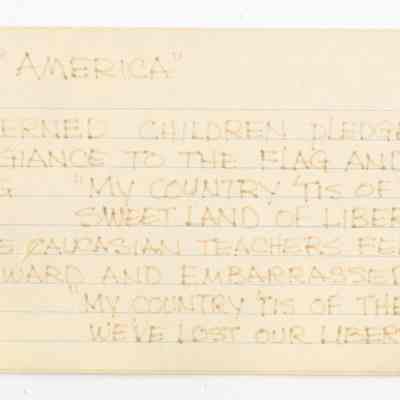 "AMERICA"
ERNED CHILDREN PLEDGE
GIANCE TO THE FLAG AND
G "MY COUNTRY 'TIS OF
SWEET LAND OF LIBER
E CAUCASIAN TEACHERS FE
WARD AND EMBARRASSED
"MY COUNTRY 'TIS OF THE
WE'VE LOST OUR LIBER